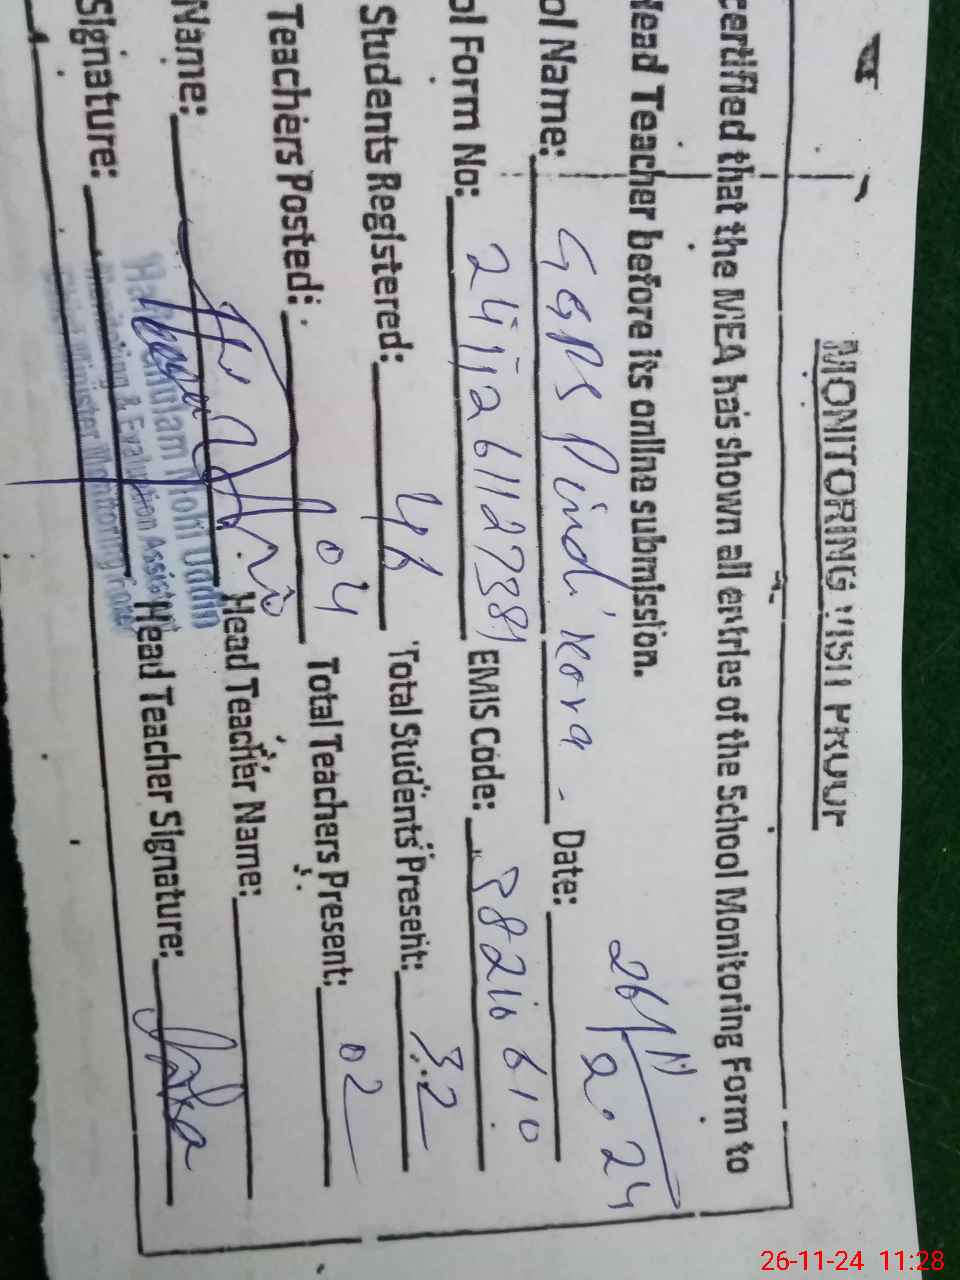 MONITORING VISIT PROOF
certified that the MEA has shown all entries of the School Monitoring Form to
Head Teacher before its online submission.
ol Name: GGPS Pind Nora - Date: 26/11/2024
ol Form No: 241126112738 EMS Code: 38210610
Students Registered: 46 Total Students Present: 32
Teachers Posted: 04 Total Teachers Present: 02
Name: Head Teacher Name:
Signature: Head Teacher Signature:
Ghulam Mohi Uddin
Monitoring & Evaluation Assistant
Chief Minister Monitoring Force
26-11-24 11:28